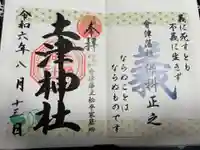 義に死すとも
不義に生きず
會津藩祖 保科正之
義
ならぬことは
ならぬものです
奉拝
土津神社
令和六年八月十一日